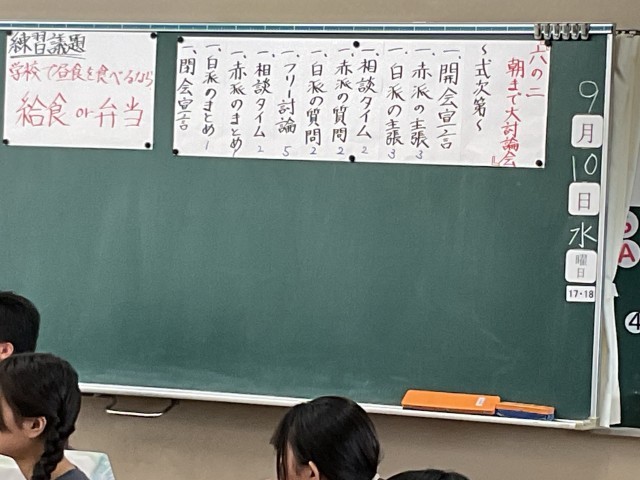 練習議題
学校で昼食を食べるなら
給食 or 弁当
六の二
朝まで大討論会
～式次第～
一、開会宣言
一、赤派の主張 3
一、白派の主張 3
一、相談タイム 2
一、赤派の質問 2
一、白派の質問 2
一、フリー討論 5
一、相談タイム 2
一、赤派のまとめ 1
一、白派のまとめ 1
一、閉会宣言
9
月
10
日
水
曜日
17・18
A
④